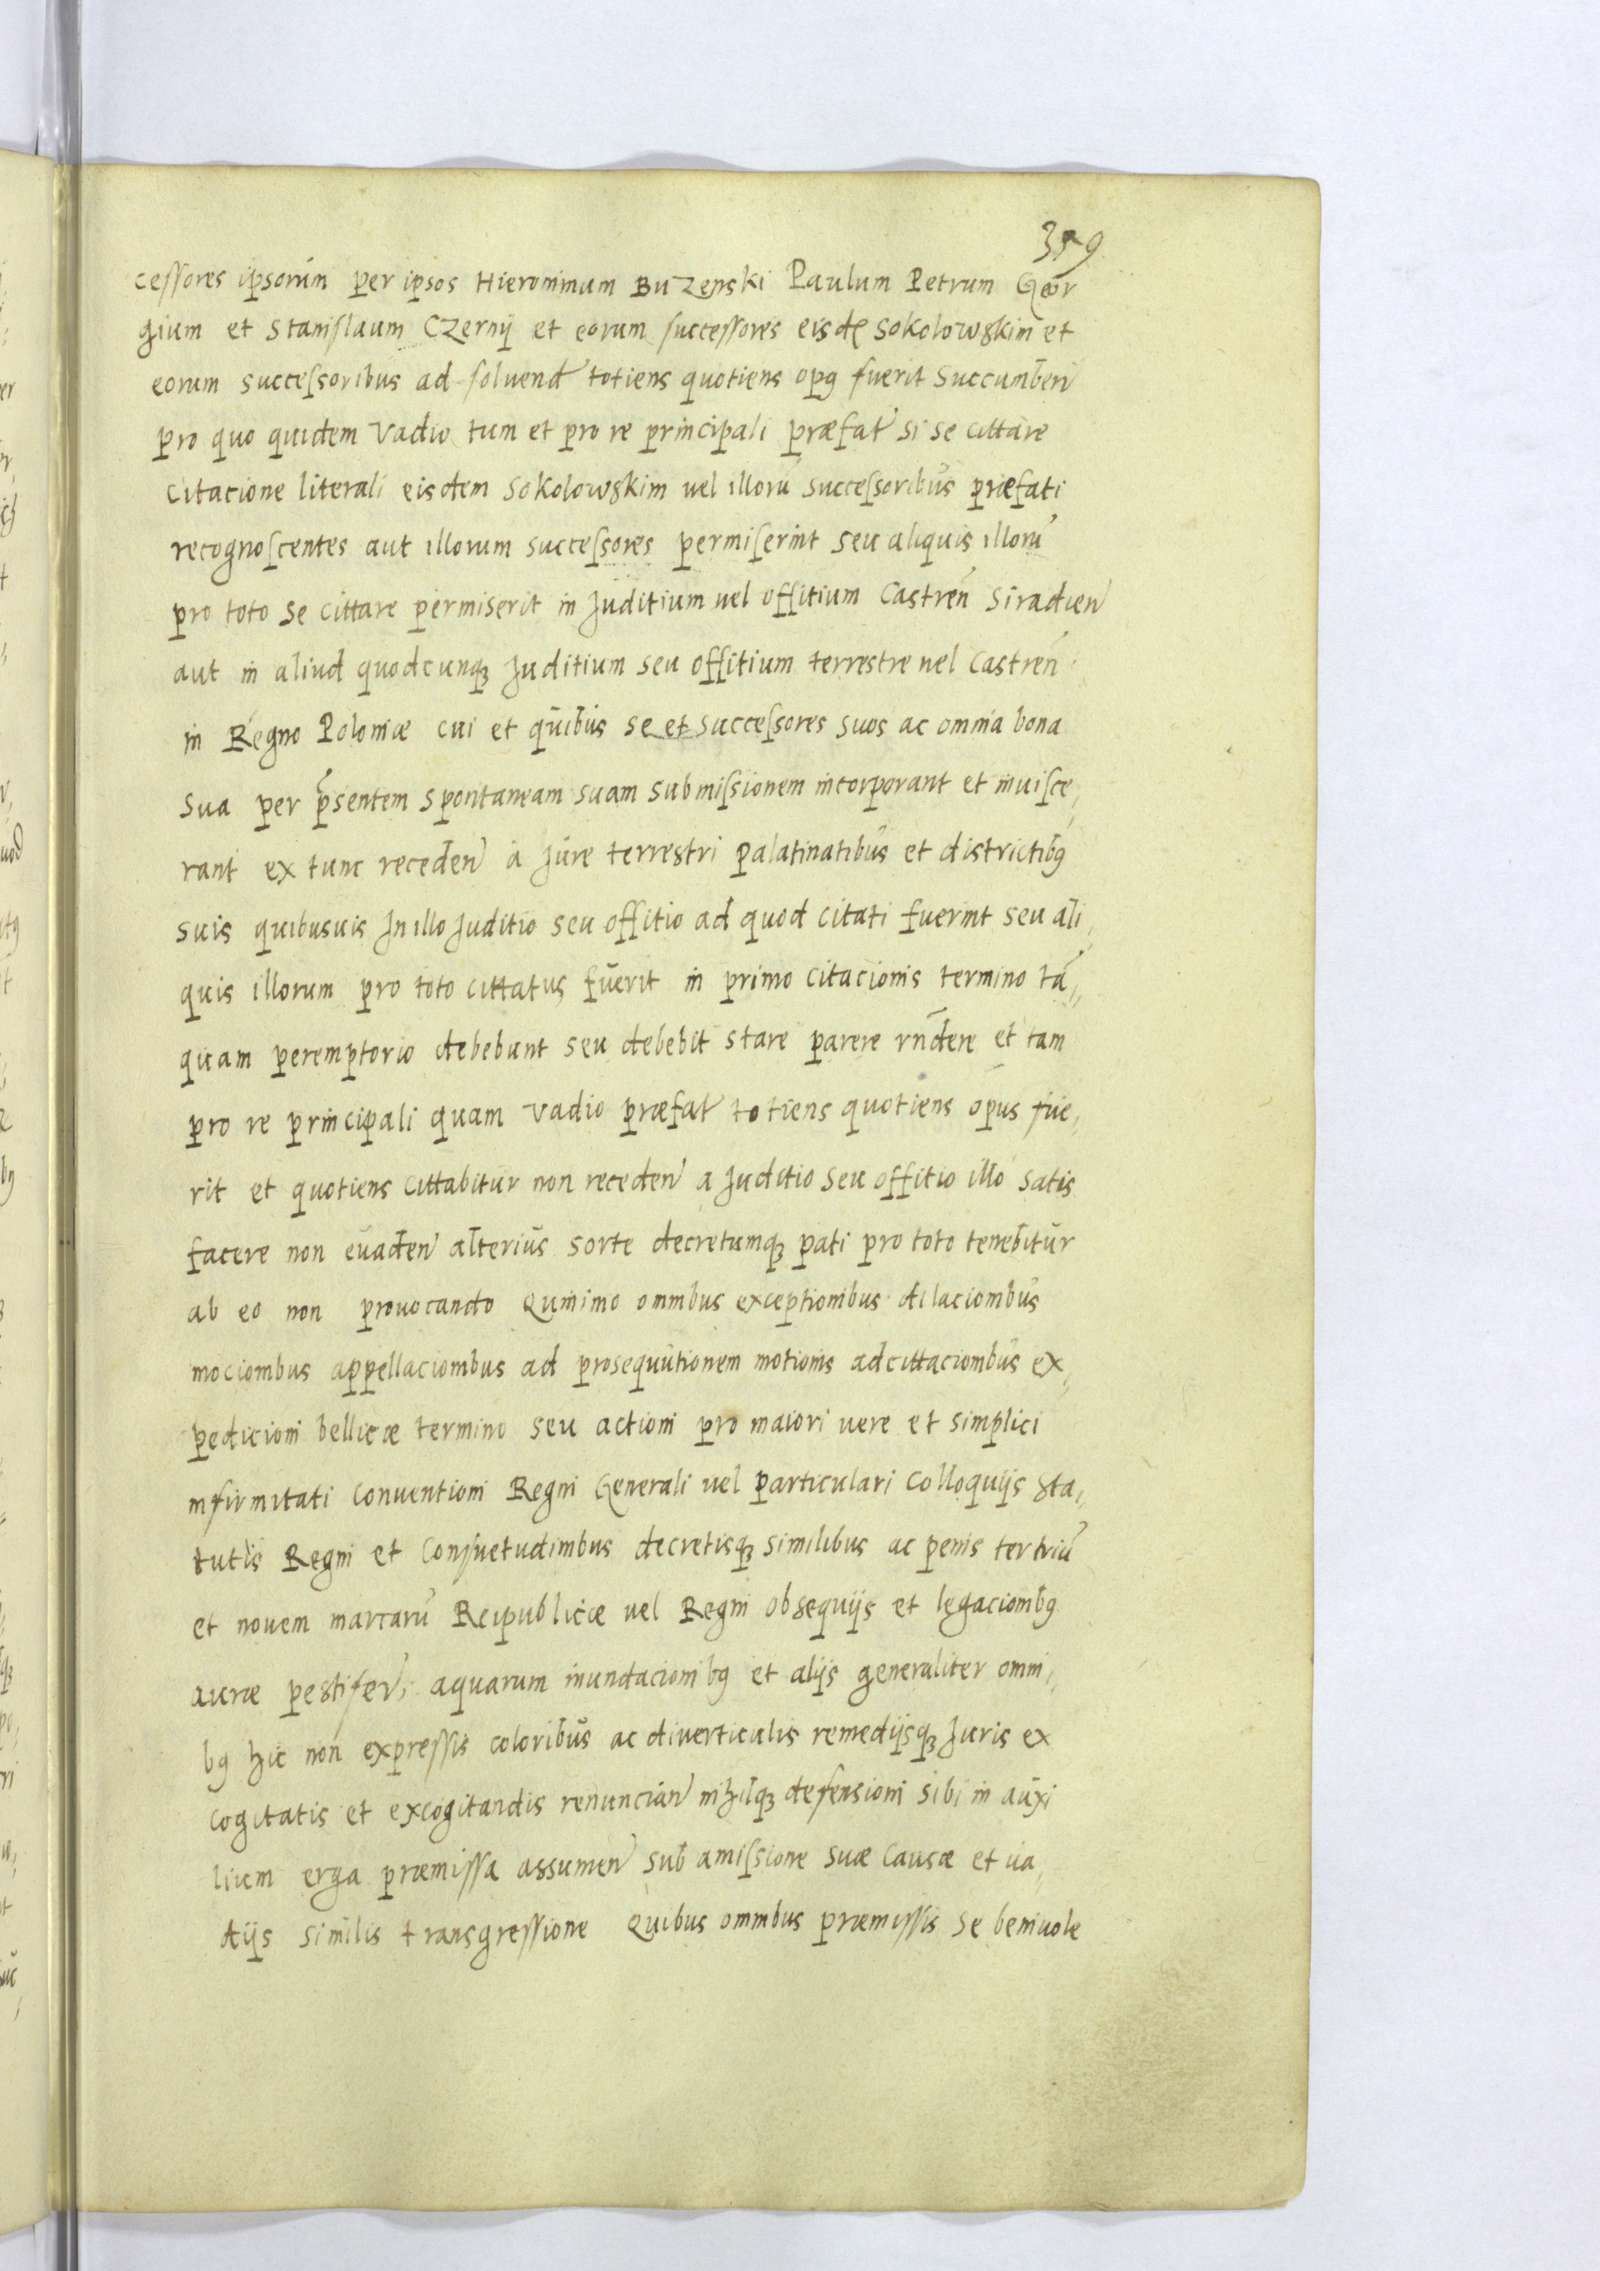 cessores ipsorum per ipsos Hieronimum BuZenski Paulum Petrum Geor
gium et Stanislaum CZernij et eorum successores eisdē Sokolowskim et
eorum successoribus ad soluend totiens quotiens opꝯ fuerit Succumben
pro quo quidem Vadio tum et pro re principali præfat si se cittare
Citacione literali eisdem Sokolowskim uel illorū successoribus præfati
recognoscentes aut illorum successores permiserint seu aliquis illorū
pro toto se cittare permiserit in Juditium uel offitium Castren̄ Siradien
aut in aliud quodcunqꝫ Juditium seu offitium terrestre uel Castren̄
in Regno Poloniæ cui et quibus se et successores suos ac omnia bona
sua per p̄sentem spontaneam suam submissionem incorporant et inuisce,
rant ex tunc receden a Jure terrestri palatinatibus et districtibꝯ
suis quibusuis In illo Juditio seu offitio ad quod citati fuerint seu ali,
quis illorum pro toto cittatus fuerit in primo citacionis termino tā,,
quam peremptorio debebunt seu debebit stare parere rn̄dere et tam
pro re principali quam vadio præfat totiens quotiens opus fue,
rit et quotiens cittabitur non receden a Juditio seu offitio illo satis
facere non euaden alterius sorte decretumqꝫ pati pro toto tenebitur
ab eo non prouocando Quinimo omnibus exceptionibus dilacionibus
mocionibus appellacionibus ad prosequutionem motionis adcittacionibus ex,
pedicioni bellicæ termino seu actioni pro maiori uere et simplici
infirmitati Conuentioni Regni Generali uel particulari Colloquijs sta,,
tutis Regni et Consuetudinibus decretisqꝫ similibus ac penis ter triū
et nouem marcarū Reipublicæ uel Regni obsequijs et legacionibꝯ
auræ pestifer, aquarum inundacionibꝯ et alijs generaliter omni,
bꝯ hic non expressis coloribus ac diuerticulis remedijsqꝫ Juris ex
cogitatis et excogitandis renuncian nihilqꝫ defensioni sibi in auxi
lium erga præmissa assumen sub amissione suæ causæ et ua,
dijs similis transgressione Quibus omnibus præmissis se beniuole